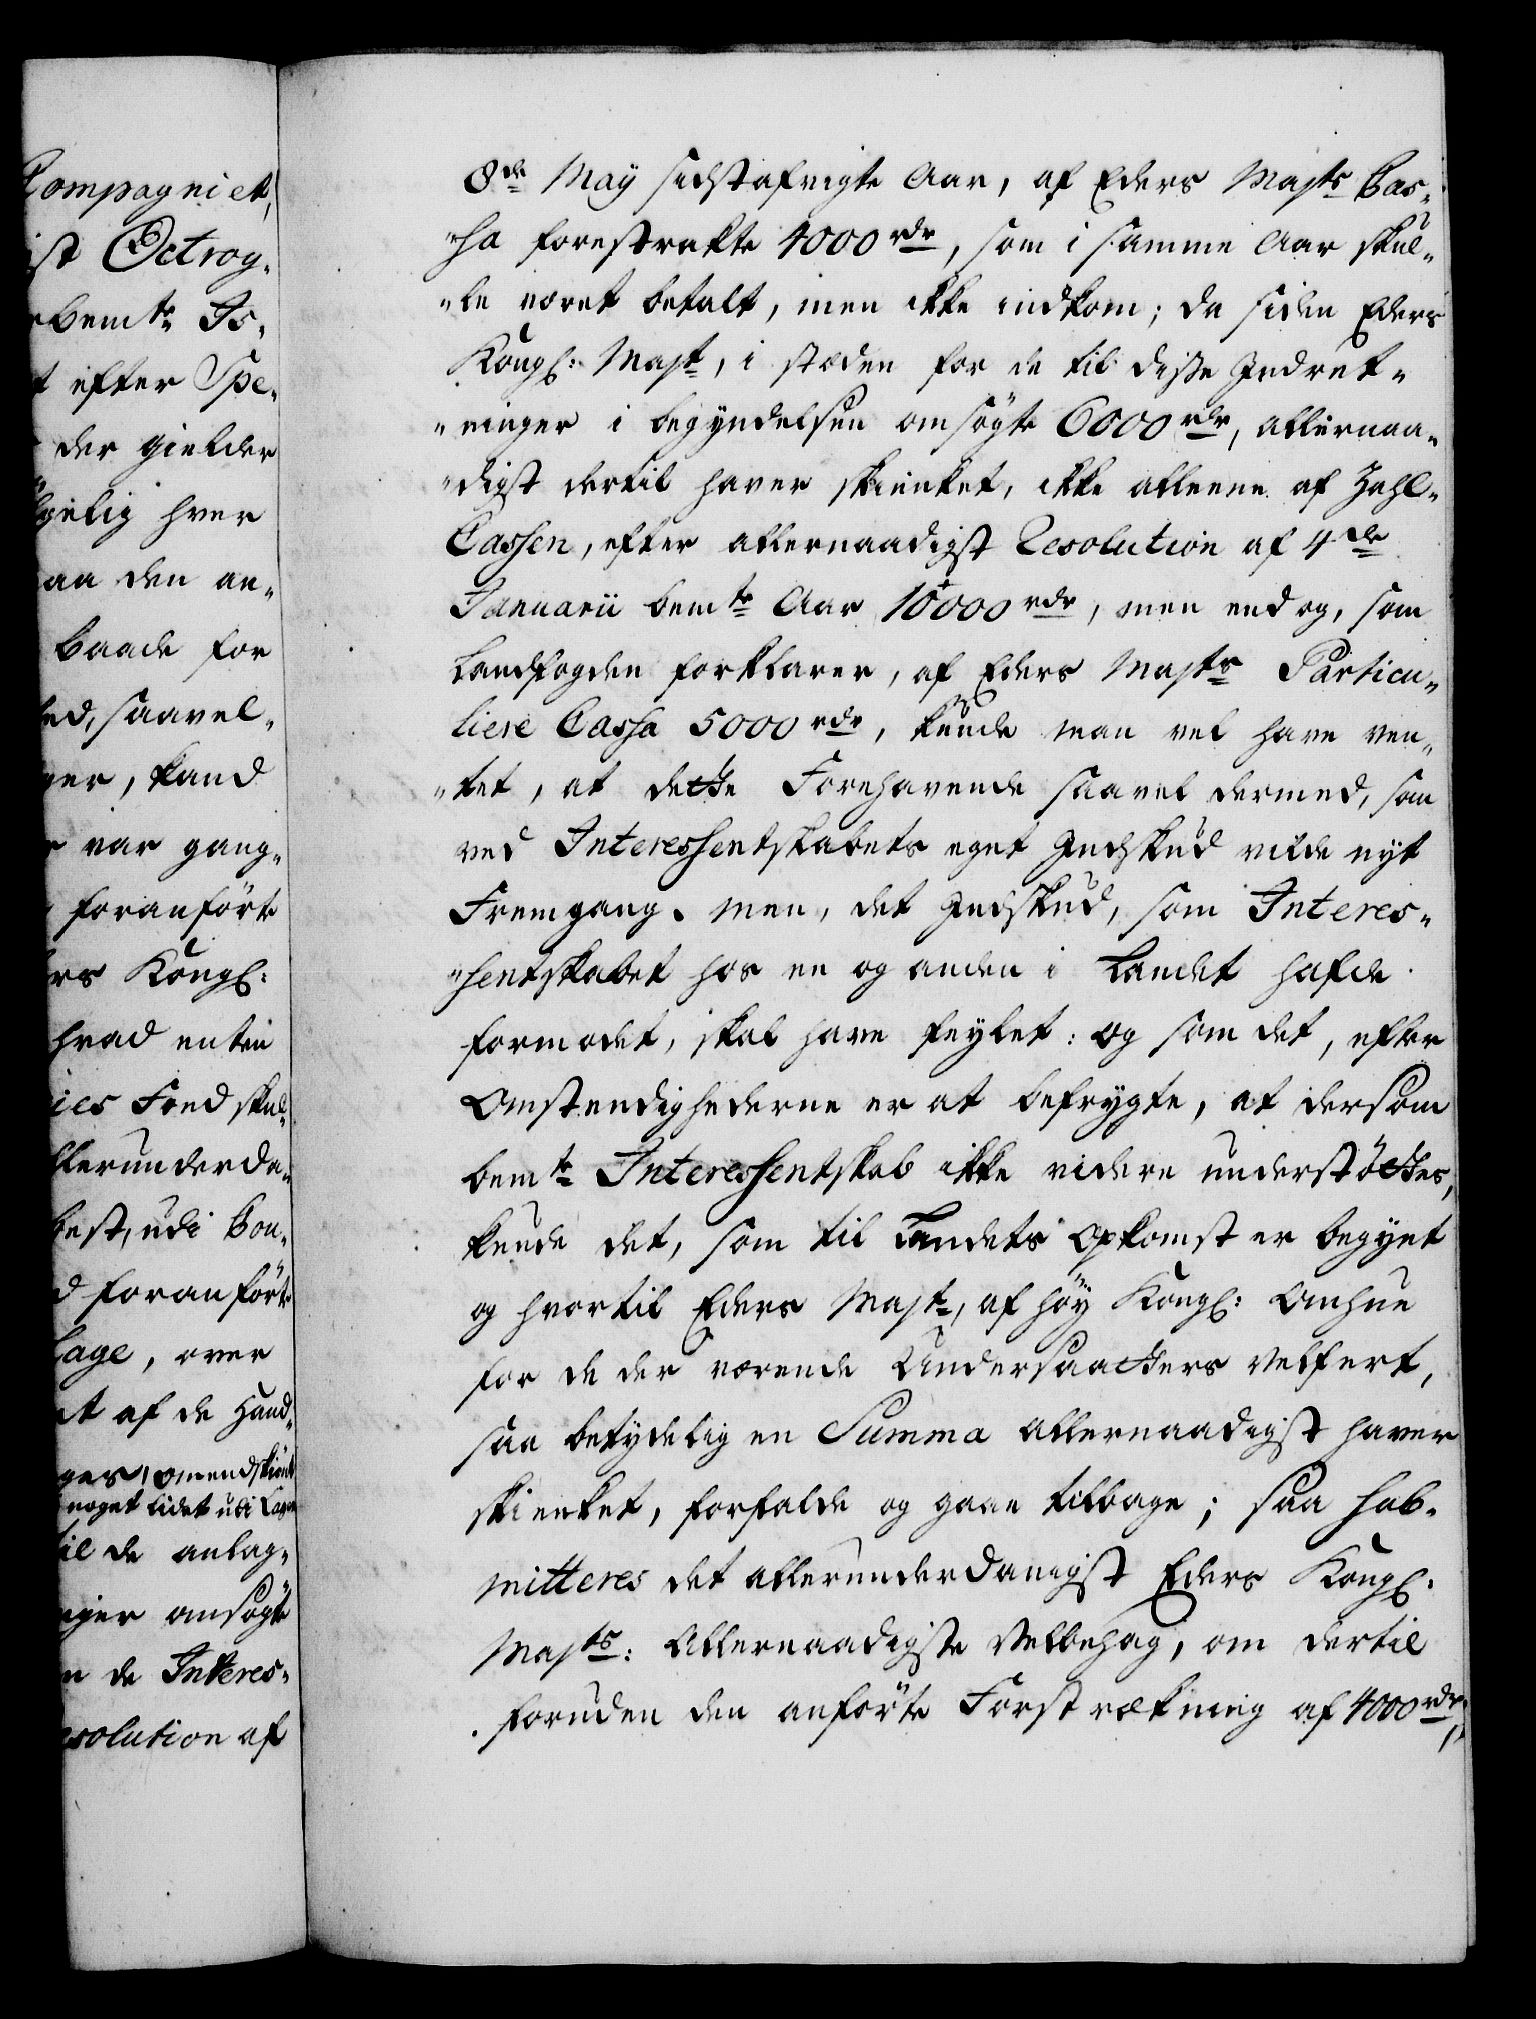 Compagniet,
ist Octroy-
rbemte Is-
t efter Spe-
der gielder
gelig hver
aa den an-
baade for
ed, saavel-
ger, kand
r var gang-
foranförte
ers Kongl:
hvad enten
ies Fond skul-
llerunderda-
best, udi Con-
d foranförte
lage, over
et af de Hand-
ges, omendskiönt
noget lidet udi Lage
til de anlag-
nger ansögte
n de Interes-
esolution af
8de Maÿ sidstafvigte Aar, af Eders Mayts Cas-
"sa forestrakte 4000 rdr, som i samme Aar skul-
"le været betalt, men ikke indkom; da siden Eders
Kongl: Mayt, i stæden for de til disse Indret-
"ninger i begyndelsen omsögte 6000 rdr, allernaa-
"digst dertil haver skienket, ikke alleene af Zahl-
Cassen, efter allernaadigst Resolution af 4de
Januarii bemte Aar 10000 rdr, men endog, som
Landfogden forklarer, af Eders Mayts Particu-
liere Cassa 5000 rdr, kunde man vel have ven-
"tet, at dette Forehavende saavel dermed, som
ved Interessentskabets eget Indskud vilde nyt
Fremgang. Men, det Indskud, som Interes-
"sentskabet hos en og anden i Landet hafde
formodet, skal have feylet: og som det, efter
Omstendighederne er at befrygte, at dersom
bemte Interessentskab ikke videre understöttes,
kunde det, som til Landets Opkomst er begynt
og hvortil Eders Mayt, af höy Kongl: Omhue
for de der værende Undersaatters Velfert,
saa betydelig en Summa allernaadigst haver
skienket, forfalde og gaae tilbage; saa sub-
mitteres det allerunderdanigst Eders Kongl:
Mayts: Allernaadigste Velbehag, om dertil
foruden den anförte Forstrækning af 4000 rdr,